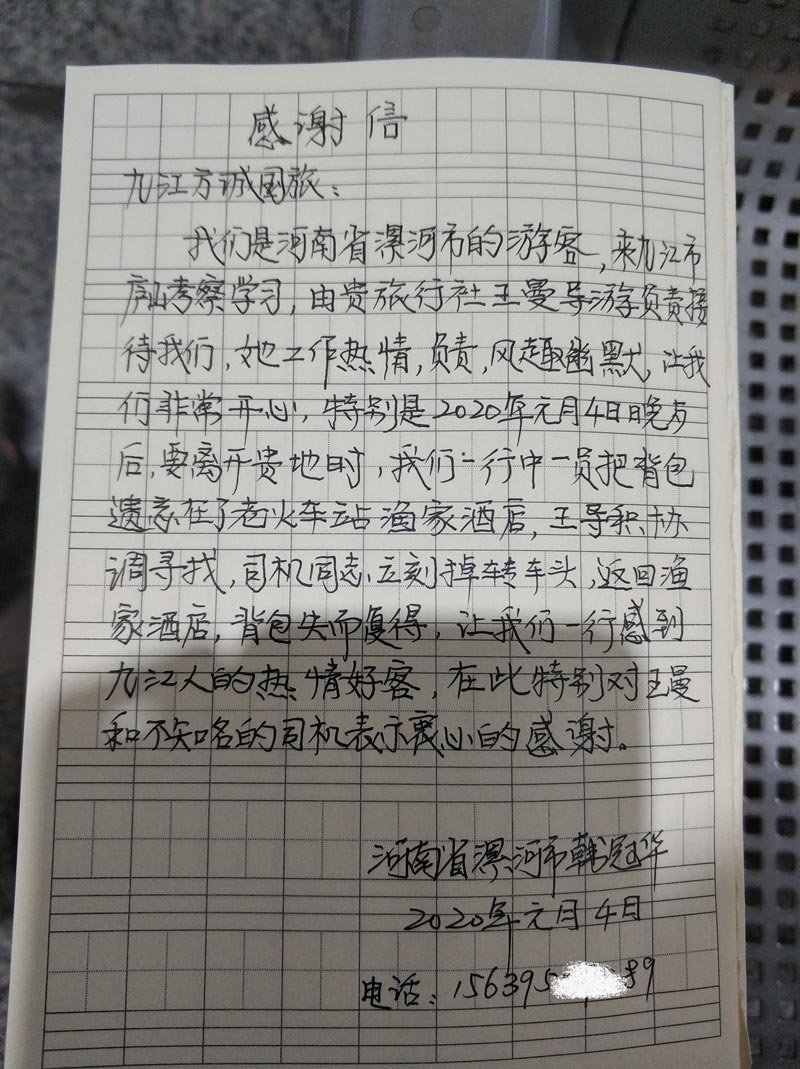 感谢信
九江方诚国旅：
我们是河南省漯河市的游客，来九江市
庐山考察学习，由贵旅行社王曼导游负责接
待我们，她工作热情，负责，风趣幽默，让我
们非常开心，特别是2020年元月4日晚左
后，要离开贵地时，我们一行中一员把背包
遗忘在了老火车站渔家酒店，王导积协
调寻找，司机同志立刻掉转车头，返回渔
家酒店，背包失而复得，让我们一行感到
九江人的热情好客，在此特别对王曼
和不知名的司机表示衷心的感谢。
河南省漯河市韩冠华
2020年元月4日
电话：156395 89